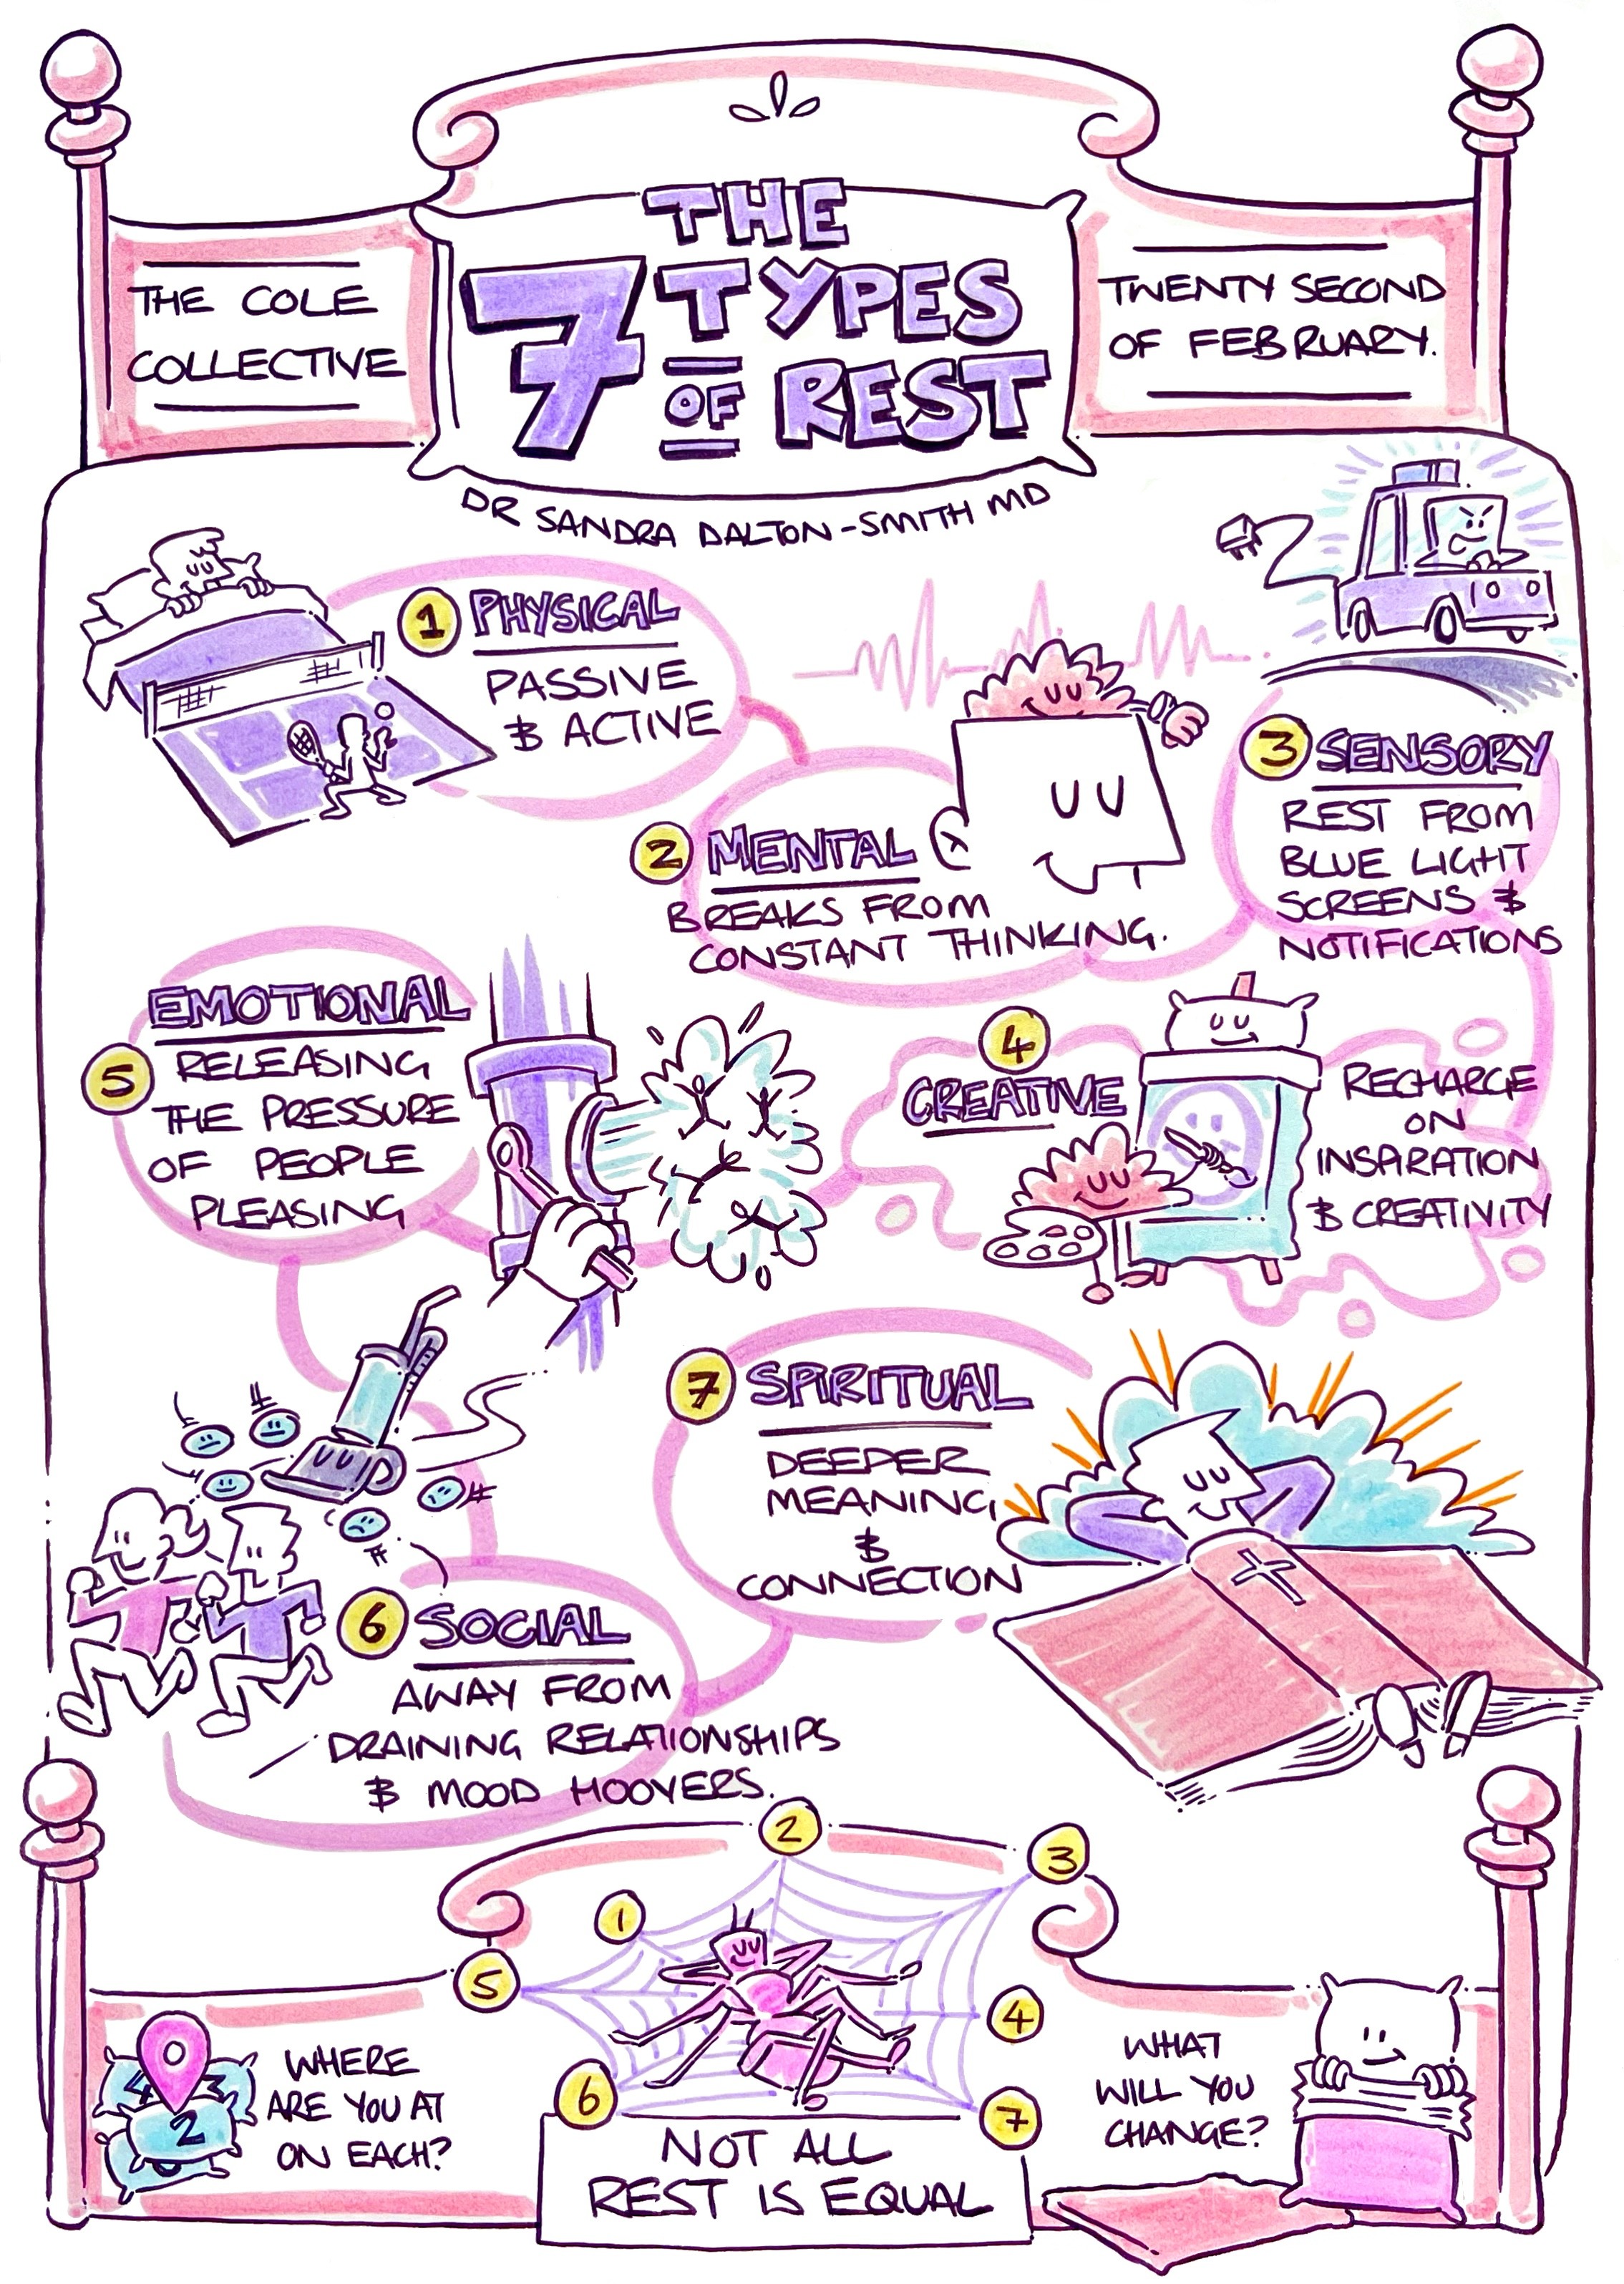 THE COLE
COLLECTIVE
THE
7 TYPES
OF REST
TWENTY SECOND
OF FEBRUARY.
DR SANDRA DALTON-SMITH MD
1 PHYSICAL
PASSIVE
& ACTIVE
2 MENTAL
BREAKS FROM
CONSTANT THINKING.
3 SENSORY
REST FROM
BLUE LIGHT
SCREENS &
NOTIFICATIONS
4
CREATIVE
RECHARGE
ON
INSPIRATION
& CREATIVITY
EMOTIONAL
5 RELEASING
THE PRESSURE
OF PEOPLE
PLEASING
6 SOCIAL
AWAY FROM
DRAINING RELATIONSHIPS
& MOOD HOOVERS.
7 SPIRITUAL
DEEPER
MEANING
&
CONNECTION
2
3
1
5
4
6
7
4 3
2
WHERE
ARE YOU AT
ON EACH?
NOT ALL
REST IS EQUAL
WHAT
WILL YOU
CHANGE?